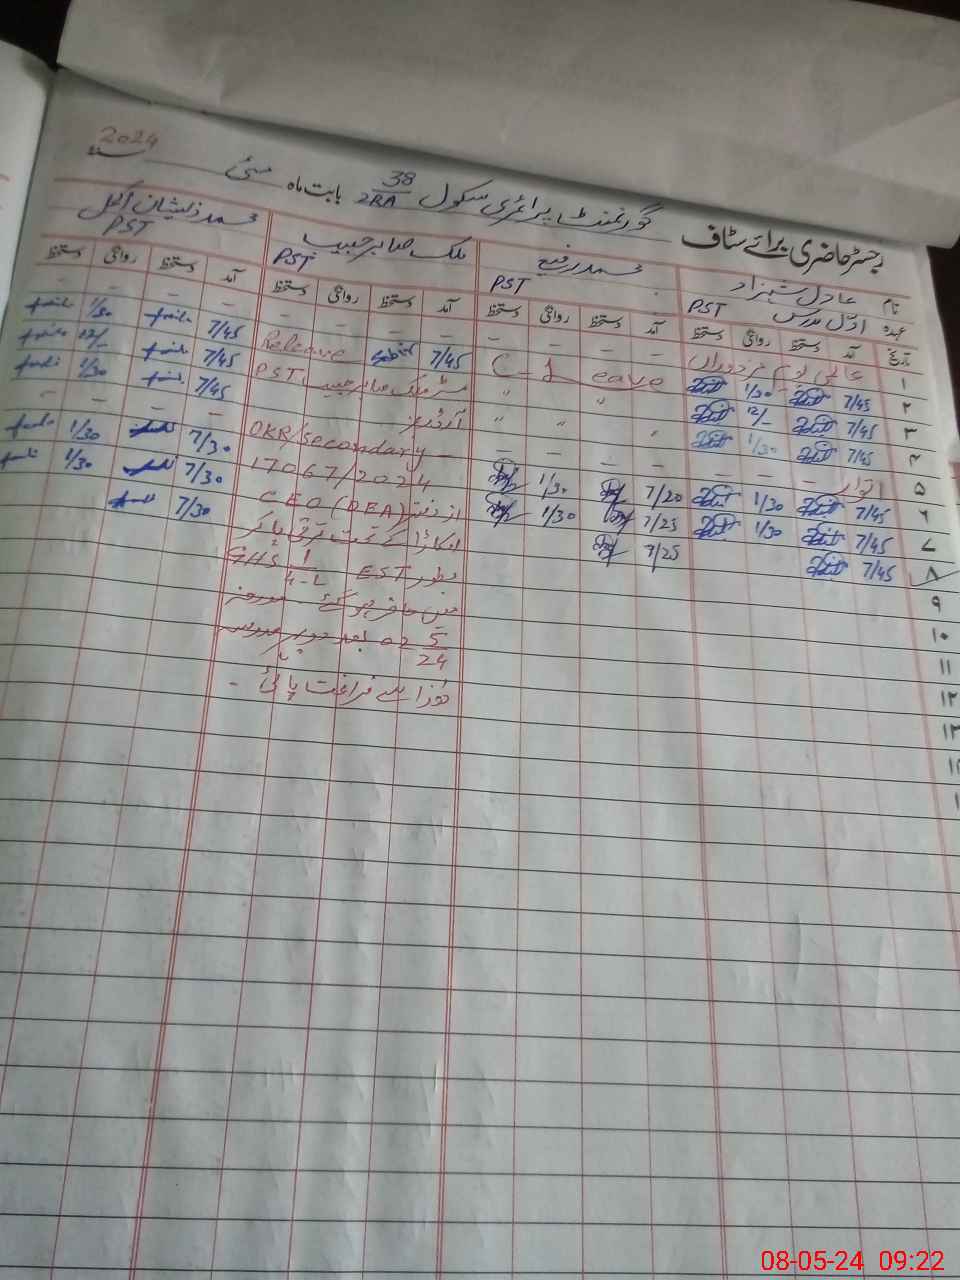 2024
رجسٹر حاضری برائے سٹاف گورنمنٹ پرائمری سکول 38/2RA بابت ماہ مئی
نام عادل شہزاد محمد رفیع ملک صابر حبیب محمد ذیشان
عہدہ اوّل مدرس PST PST PST PST
تاریخ آمد دستخط روانگی دستخط آمد دستخط روانگی دستخط آمد دستخط روانگی دستخط آمد دستخط روانگی دستخط
۱ عالمی یوم مزدوراں - - - - - - - - - - - -
۲ 7/45 1/30 C-Leave 7/45 Releave 7/45 1/30
۳ 7/45 12/- " " مسٹر ملک صابر حبیب PST 7/45 12/-
۴ 7/45 1/30 " " " آرڈر نمبر 7/45 1/30
۵ اتوار - - - - - - OKR/Secondary - - - -
۶ 7/45 1/30 7/20 1/30 17067/2024 7/30 1/30
۷ 7/45 1/30 7/25 1/30 از دفتر CEO (DEA) 7/30 1/30
۸ 7/45 7/25 اوکاڑا کے تحت ترقی پا کر 7/30
۹ بطور EST GHS 1/4-L
۱۰ میں حاضر ہو گئے۔ مورخہ
۱۱ 02 5/24 بعد دوپہر مدرسہ
۱۲ ہٰذا سے فراغت پائی۔
۱۳
08-05-24 09:22